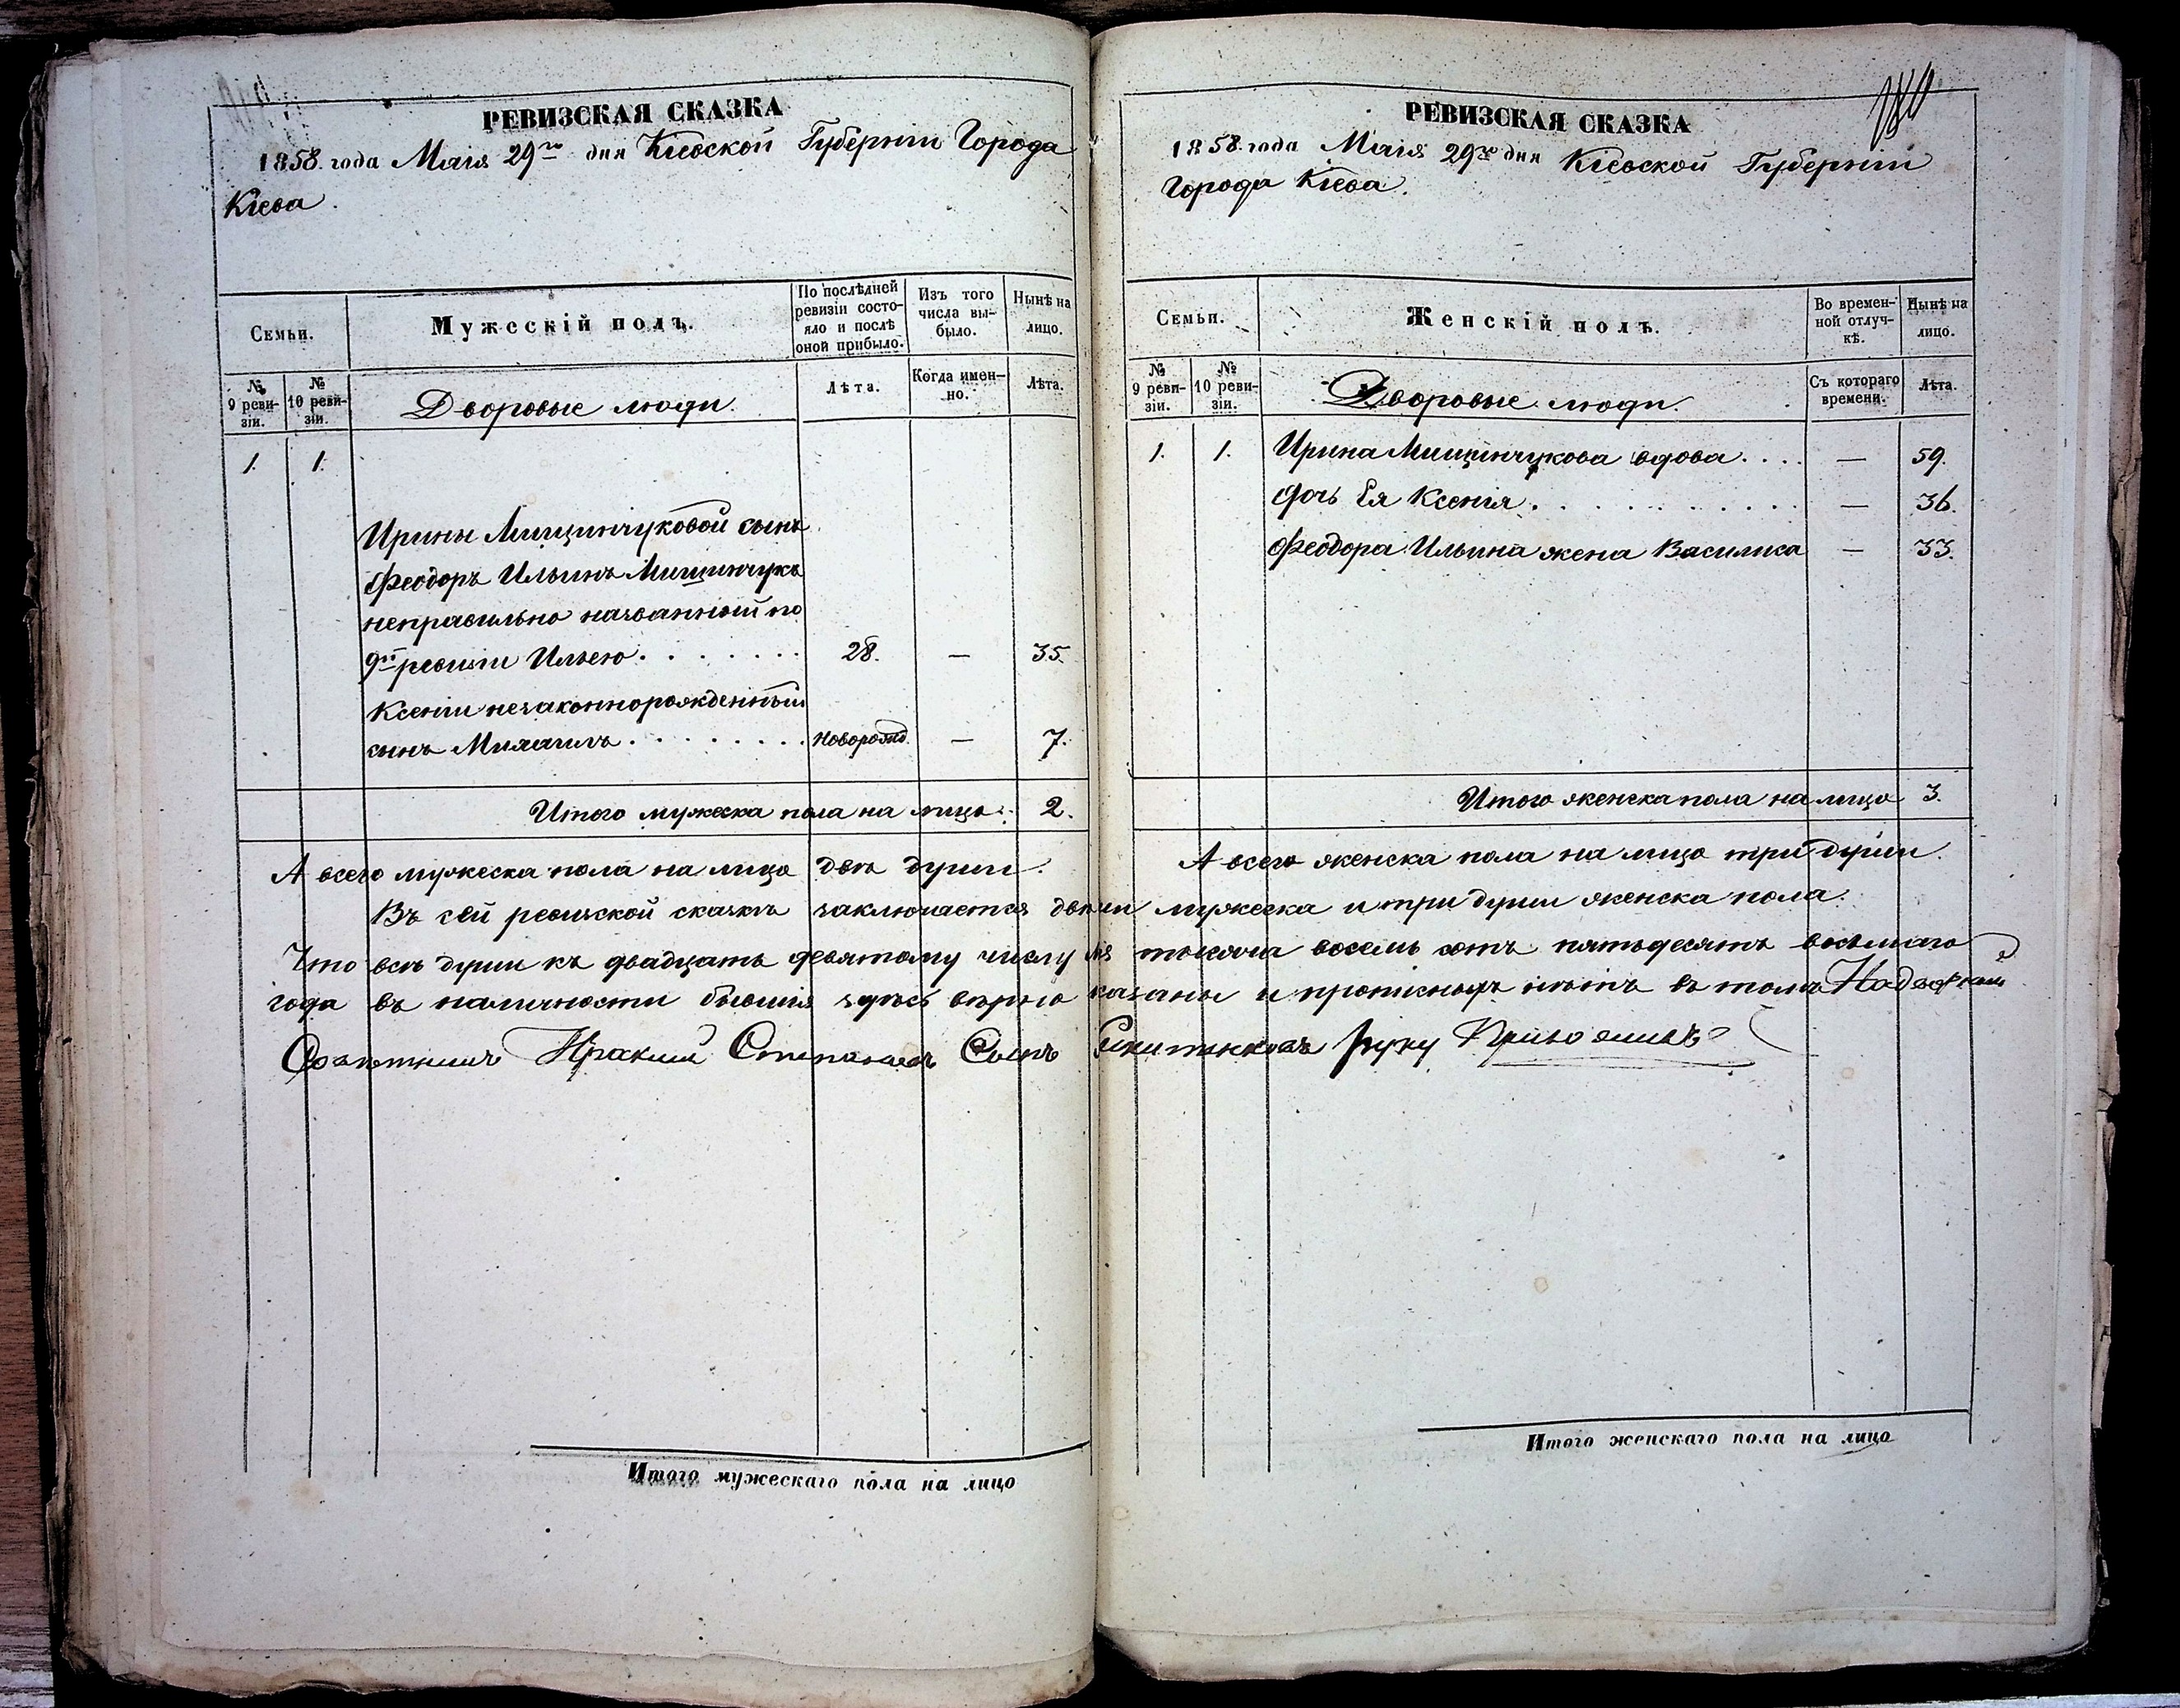 РЕВИЗСКАЯ СКАЗКА
1858. года Маія 29го дня Кіевской Губерніи Города
Кіева.
Семьи.
Мужескій полъ.
По послѣдней
ревизіи состо-
яло и послѣ
оной прибыло.
Изъ того
числа вы-
было.
Нынѣ на
лицо.
№
9 реви-
зіи.
№
10 реви-
зіи.
Дворовые люди.
Лѣта.
Когда имен-
но.
Лѣта.
1. 1.
Ирины Мищинчуковой сынъ
Феодоръ Ильинъ Мищинчукъ
неправильно названный по
9й ревизіи Ильею . . . . . . . 28. — 35.
Ксеніи незаконнорожденный
сынъ Михаилъ . . . . . . . . новорожд. — 7.
Итого мужеска пола на лицо 2.
А всего мужеска пола на лицо двѣ души.
Итого мужескаго пола на лицо
180
РЕВИЗСКАЯ СКАЗКА
1858. года Маія 29го дня Кіевской Губерніи
Города Кіева.
Семьи.
Женскій полъ.
Во времен-
ной отлуч-
кѣ.
Нынѣ на
лицо.
№
9 реви-
зіи.
№
10 реви-
зіи.
Дворовые люди.
Съ котораго
времени.
Лѣта.
1. 1. Ирина Мищинчукова вдова . . . . — 59.
дочь Ея Ксенія . . . . . . . . . . . — 36.
Феодора Ильина жена Василиса — 33.
Итого женска пола на лицо 3.
А всего женска пола на лицо три души.
Въ сей ревизской сказкѣ заключается мужеска и три души женска пола.
Что всѣ души къ двадцать девятому числу тысяча восемь сотъ пятьдесятъ восьмаго
года въ наличности бывшія здѣсь вѣрно казаны и прописныхъ нѣтъ въ томъ Надворный
Совѣтникъ Степановъ Сынъ руку Приложилъ
Итого женскаго пола на лицо